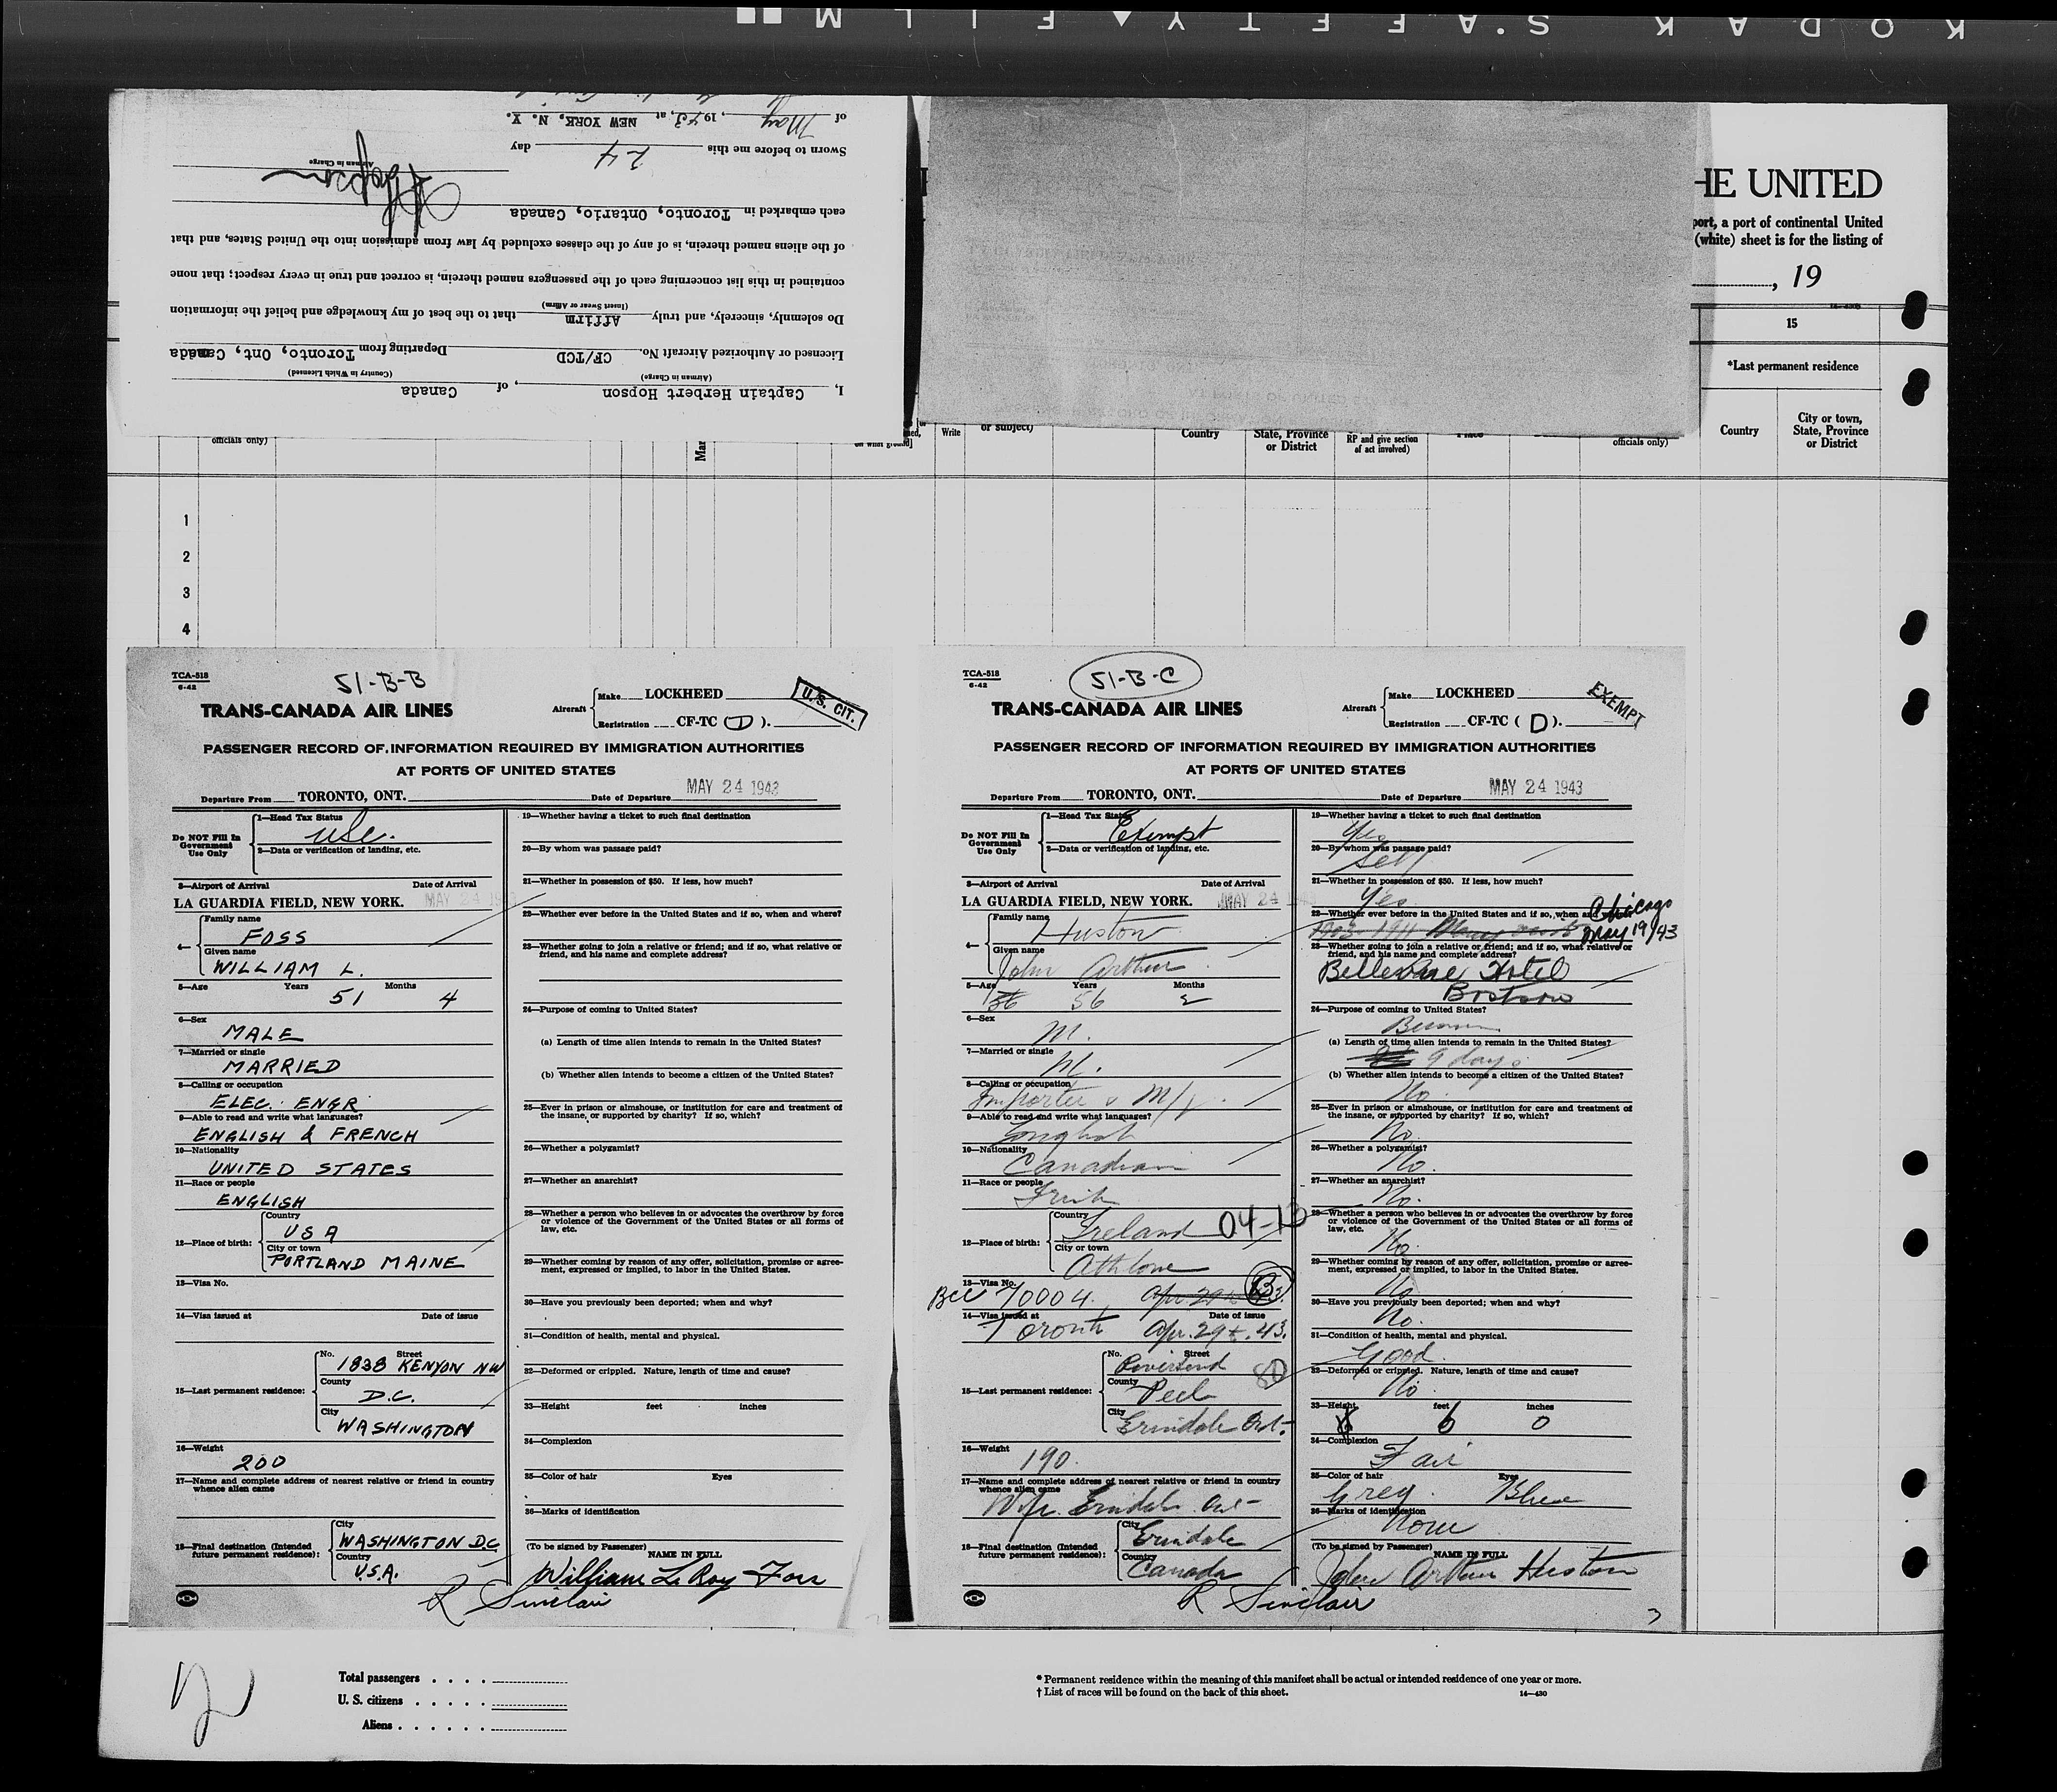 KODAK SAFETY FILM
of May, 1943, at NEW YORK, N. Y.
Sworn to before me this 24 day
Airman in Charge
each embarked in Toronto, Ontario, Canada
of the aliens named therein, is of any of the classes excluded by law from admission into the United States, and that
contained in this list concerning each of the passengers named therein, is correct and true in every respect; that none
(Insert Swear or Affirm)
Do solemnly, sincerely, and truly Affirm that to the best of my knowledge and belief the information
Licensed or Authorized Aircraft No. CF/TCD Departing from Toronto, Ont, Canada
(Airman in Charge) (Country in Which Licensed)
I, Captain Herbert Hopson, of Canada
HE UNITED
port, a port of continental United
(white) sheet is for the listing of
, 19
15
*Last permanent residence
officials only)
Mar
Write
or subject)
Country
State, Province
or District
RP and give section
of act involved)
officials only)
Country
City or town,
State, Province
or District
1
2
3
4
TCA-518
6-42
51-B-B
TRANS-CANADA AIR LINES
Aircraft
Make LOCKHEED
Registration CF-TC (D).
U.S. CIT.
PASSENGER RECORD OF INFORMATION REQUIRED BY IMMIGRATION AUTHORITIES
AT PORTS OF UNITED STATES
Departure From TORONTO, ONT. Date of Departure MAY 24 1943
Do NOT Fill In
Government
Use Only
1—Head Tax Status
USC.
2—Data or verification of landing, etc.
3—Airport of Arrival Date of Arrival
LA GUARDIA FIELD, NEW YORK. MAY 24 1943
4—
Family name
FOSS
Given name
WILLIAM L.
5—Age Years Months
51 4
6—Sex
MALE
7—Married or single
MARRIED
8—Calling or occupation
ELEC. ENGR
9—Able to read and write what languages?
ENGLISH & FRENCH
10—Nationality
UNITED STATES
11—Race or people
ENGLISH
12—Place of birth:
Country
USA
City or town
PORTLAND MAINE
13—Visa No.
14—Visa issued at Date of issue
15—Last permanent residence:
No. Street
1838 KENYON NW
County
D.C.
City
WASHINGTON
16—Weight
200
17—Name and complete address of nearest relative or friend in country
whence alien came
18—Final destination (Intended
future permanent residence):
City
WASHINGTON D.C.
Country
U.S.A.
19—Whether having a ticket to such final destination
20—By whom was passage paid?
21—Whether in possession of $50. If less, how much?
22—Whether ever before in the United States and if so, when and where?
23—Whether going to join a relative or friend; and if so, what relative or
friend, and his name and complete address?
24—Purpose of coming to United States?
(a) Length of time alien intends to remain in the United States?
(b) Whether alien intends to become a citizen of the United States?
25—Ever in prison or almshouse, or institution for care and treatment of
the insane, or supported by charity? If so, which?
26—Whether a polygamist?
27—Whether an anarchist?
28—Whether a person who believes in or advocates the overthrow by force
or violence of the Government of the United States or all forms of
law, etc.
29—Whether coming by reason of any offer, solicitation, promise or agree-
ment, expressed or implied, to labor in the United States.
30—Have you previously been deported; when and why?
31—Condition of health, mental and physical.
32—Deformed or crippled. Nature, length of time and cause?
33—Height feet inches
34—Complexion
35—Color of hair Eyes
36—Marks of identification
(To be signed by Passenger)
NAME IN FULL
William LeRoy Foss
R Sinclair
TCA-518
6-42
51-B-C
TRANS-CANADA AIR LINES
Aircraft
Make LOCKHEED
Registration CF-TC (D).
EXEMPT
PASSENGER RECORD OF INFORMATION REQUIRED BY IMMIGRATION AUTHORITIES
AT PORTS OF UNITED STATES
Departure From TORONTO, ONT. Date of Departure MAY 24 1943
Do NOT Fill In
Government
Use Only
1—Head Tax Status
Exempt
2—Data or verification of landing, etc.
3—Airport of Arrival Date of Arrival
LA GUARDIA FIELD, NEW YORK. MAY 24 1943
4—
Family name
Huston
Given name
John Arthur
5—Age Years Months
56 2
6—Sex
M.
7—Married or single
M.
8—Calling or occupation
Importer & M/f
9—Able to read and write what languages?
English
10—Nationality
Canadian
11—Race or people
Irish
12—Place of birth:
Country
Ireland 04-13
City or town
Athlone
13—Visa No.
70004. Apr. 29 B
14—Visa issued at Date of issue
Toronto Apr. 29. 43.
15—Last permanent residence:
No. Street
80
County
Peel
City
Erindale Ont.
16—Weight
190.
17—Name and complete address of nearest relative or friend in country
whence alien came
Wife. Erindale Ont
18—Final destination (Intended
future permanent residence):
City
Erindale
Country
Canada
19—Whether having a ticket to such final destination
Yes
20—By whom was passage paid?
Self
21—Whether in possession of $50. If less, how much?
Yes
22—Whether ever before in the United States and if so, when and where?
Chicago
May 19/43
23—Whether going to join a relative or friend; and if so, what relative or
friend, and his name and complete address?
Bellevue Hotel
Boston
24—Purpose of coming to United States?
(a) Length of time alien intends to remain in the United States?
9 days
(b) Whether alien intends to become a citizen of the United States?
No.
25—Ever in prison or almshouse, or institution for care and treatment of
the insane, or supported by charity? If so, which?
No.
26—Whether a polygamist?
No.
27—Whether an anarchist?
No.
28—Whether a person who believes in or advocates the overthrow by force
or violence of the Government of the United States or all forms of
law, etc.
No.
29—Whether coming by reason of any offer, solicitation, promise or agree-
ment, expressed or implied, to labor in the United States.
No
30—Have you previously been deported; when and why?
No.
31—Condition of health, mental and physical.
Good.
32—Deformed or crippled. Nature, length of time and cause?
No.
33—Height feet inches
6 0
34—Complexion
Fair
35—Color of hair Eyes
Grey. Blue
36—Marks of identification
None
(To be signed by Passenger)
NAME IN FULL
John Arthur Huston
R Sinclair
Total passengers
U. S. citizens
Aliens
* Permanent residence within the meaning of this manifest shall be actual or intended residence of one year or more.
† List of races will be found on the back of this sheet.